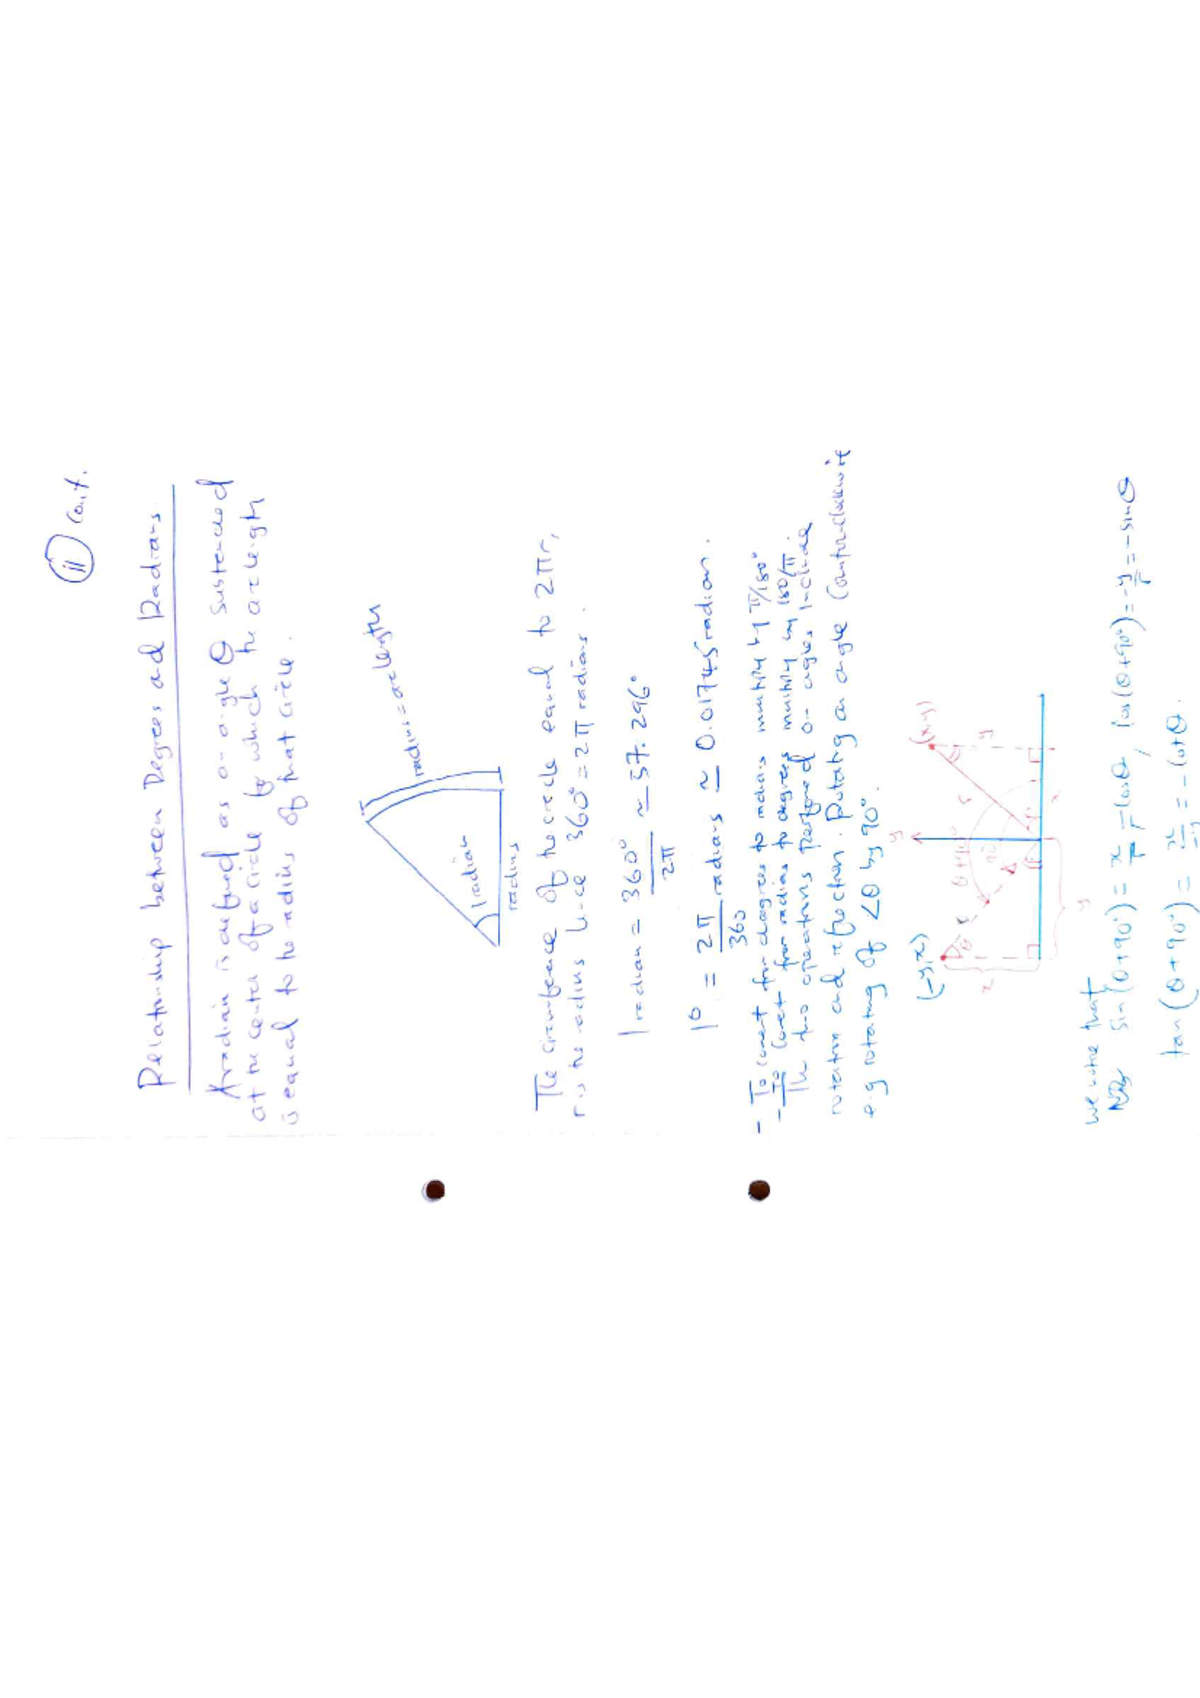 (ii) Cont.
Relationship between Degrees and Radians
A radian is defined as an angle θ subtended
at the center of a circle for which the arclength
is equal to the radius of that circle.
radius = arclength
1 radian
radius
The circumference of the circle equal to 2πr,
r is the radius hence 360° = 2π radians.
1 radian = 360°/2π ≃ 57.296°
1° = 2π/360 radians ≃ 0.01745 radian.
- To convert from degrees to radians multiply by π/180°
- To convert from radians to degrees multiply by 180/π.
The two operations performed on angles include
rotation and reflection. Rotating an angle counter-clockwise
e.g rotating of ∠θ by 90°.
(-y,x)
y
(x,y)
θ
r
θ+90°
r
y
x
x
y
We note that
sin(θ+90°) = x/r = cosθ, cos(θ+90°) = -y/r = -sinθ
tan(θ+90°) = x/-y = -cotθ.